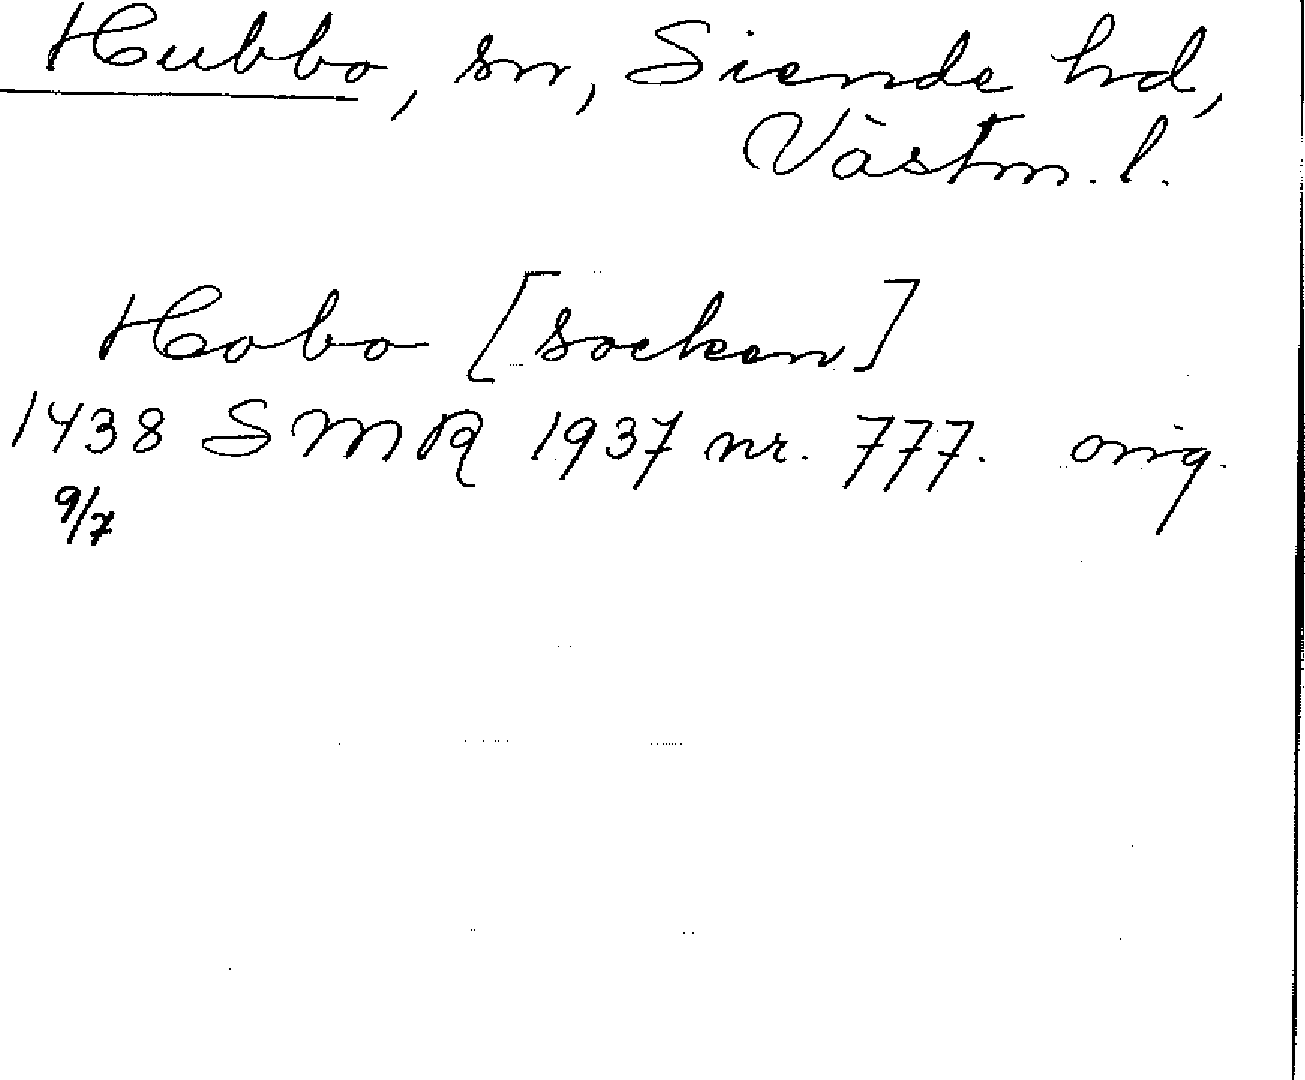 Hubbo, sn, Siende hd,
Västm. l.
Hobo [socken]
1438 SMR 1937 nr. 777. orig.
9/7